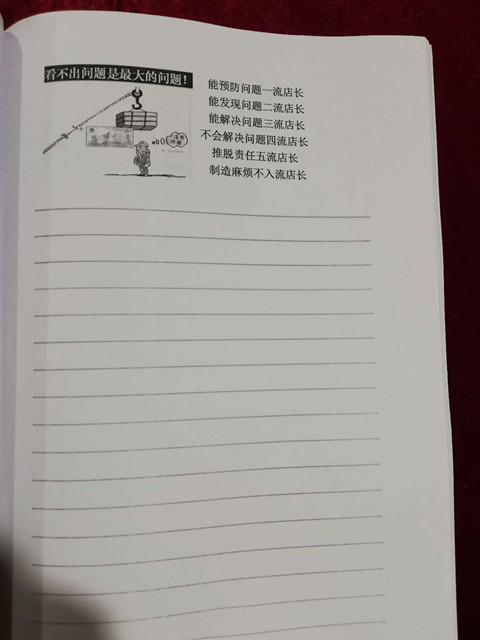 看不出问题是最大的问题!
能预防问题一流店长
能发现问题二流店长
能解决问题三流店长
不会解决问题四流店长
推脱责任五流店长
制造麻烦不入流店长